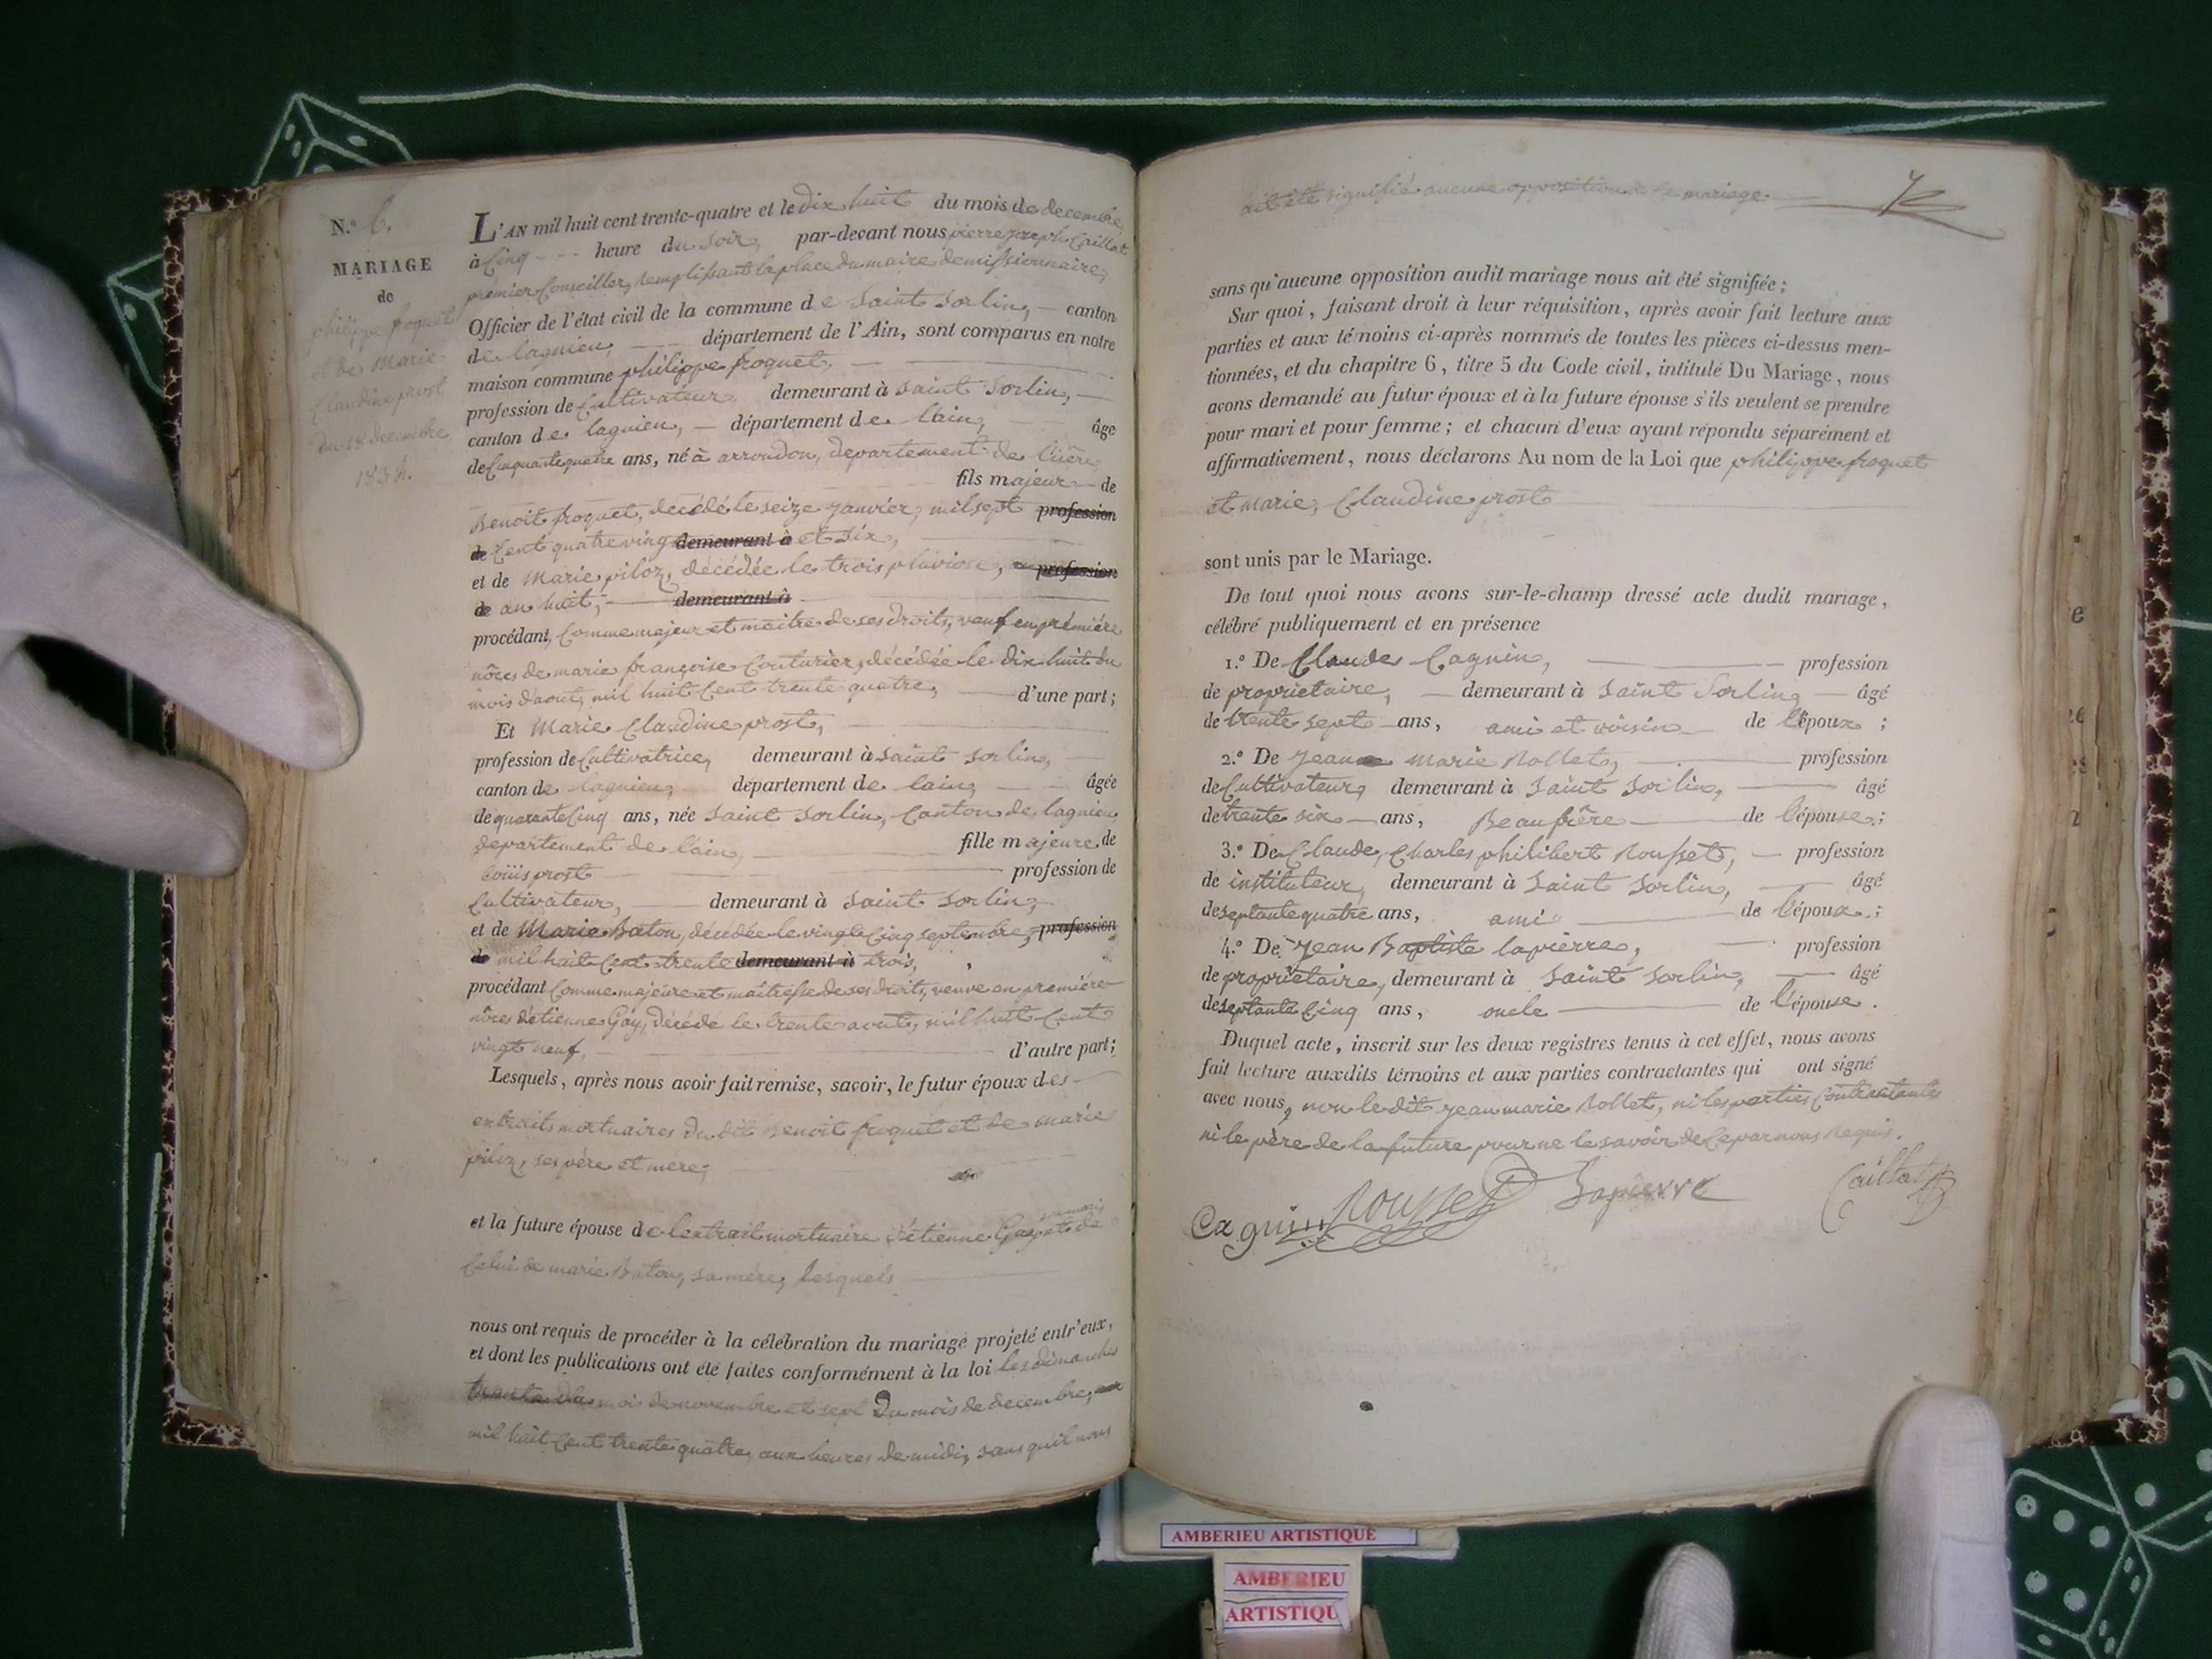 N.º 6.
MARIAGE
de
philippe froquet
et de Marie
Claudine prost
du 18 decembre
1834.
L'AN mil huit cent trente-quatre et le dix huit du mois de decembre
à Cinq heure du soir, par-devant nous pierre joseph Caillat
prémier Conseiller, remplissant la place du maire démissionnaire,
Officier de l'état civil de la commune de Saint Sorlin, canton
de lagnieu, département de l'Ain, sont comparus en notre
maison commune philippe froquet,
profession de Cultivateur, demeurant à Saint Sorlin,
canton de lagnieu, département de lain, âge
de Cinquante quatre ans, né à arrondon, departement de l'isère,
fils majeur de
Benoit froquet, décédé le seize janvier, mil sept profession
de Cent quatre ving demeurant à et six,
et de Marie piloz, décédée le trois pluviose, profession
de an huit, demeurant à
procédant, Comme majeur et maitre de ses droits, veuf en première
nôces de marie françoise Couturier, décédée le dix huit du
mois d'aout, mil huit Cent trente quatre, d'une part;
Et Marie Claudine prost,
profession de Cultivatrice, demeurant à saint sorlin,
canton de lagnieu, département de lain, âgée
de quarante Cinq ans, née Saint Sorlin, Canton de lagnieu,
departement de lain, fille majeure de
Loüis prost profession de
Cultivateur, demeurant à Saint Sorlin,
et de Marie Baton, décédée le vingt Cinq septembre, profession
de mil huit Cent trente demeurant à trois,
procédant Comme majeure et maîtresse de ses droits, veuve en première
nôces d'etienne Gay, décédé le trente aout, mil huit Cent
vingt neuf, d'autre part;
Lesquels, après nous avoir fait remise, savoir, le futur époux des
extraits mortuaires du dit Benoit froquet et de marie
piloz, ses père et mère,
et la future épouse de lextrait mortuaire d'étienne Gay son mari et de
Celui de marie Baton, sa mère, lesquels
nous ont requis de procéder à la célébration du mariage projeté entr'eux,
et dont les publications ont été faites conformément à la loi les dimanches
trente du mois de novembre et sept Du mois de decembre,
mil huit Cent trente quatre, aux heures de midi, sans quil nous
ait été signifié aucune opposition à ce mariage
sans qu'aucune opposition audit mariage nous ait été signifiée;
Sur quoi, faisant droit à leur réquisition, après avoir fait lecture aux
parties et aux témoins ci-après nommés de toutes les pièces ci-dessus men-
tionnées, et du chapitre 6, titre 5 du Code civil, intitulé Du Mariage, nous
avons demandé au futur époux et à la future épouse s'ils veulent se prendre
pour mari et pour femme; et chacun d'eux ayant répondu séparément et
affirmativement, nous déclarons Au nom de la Loi que philippe froquet
et marie, Claudine prost
sont unis par le Mariage.
De tout quoi nous avons sur-le-champ dressé acte dudit mariage,
célébré publiquement et en présence
1.º De Claude Cagnin, profession
de proprietaire, demeurant à Saint Sorlin, âgé
de trente sept ans, ami et voisin de l'époux;
2.º De Jean marie Rollet, profession
de Cultivateur, demeurant à Saint Sorlin, âgé
de trente six ans, Beaufrère de l'épouse;
3.º De Claude, Charles philibert Rousset, profession
de instituteur, demeurant à Saint Sorlin, âgé
de septante quatre ans, ami de l'époux;
4.º De Jean Baptiste lapierre, profession
de propriétaire, demeurant à Saint Sorlin, âgé
de septante Cinq ans, oncle de l'épouse.
Duquel acte, inscrit sur les deux registres tenus à cet effet, nous avons
fait lecture auxdits témoins et aux parties contractantes qui ont signé
avec nous, non le dit jean marie Rollet, ni les parties Contractantes
ni le père de la future pour ne le savoir de Ce par nous Requis.
Cagnin Rousset Lapierre Caillat
AMBERIEU ARTISTIQUE
AMBERIEU
ARTISTIQU